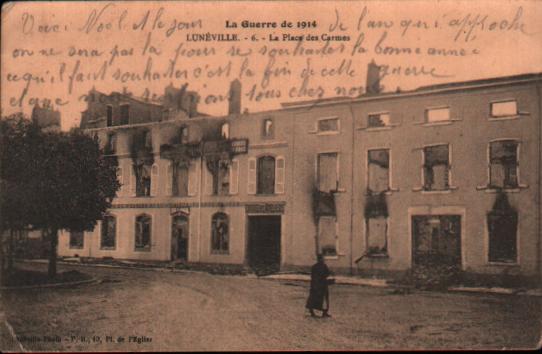 La Guerre de 1914
LUNÉVILLE. - 6. - La Place des Carmes
Voici Noel et le jour de l'an qui s'approche
on ne sera pas la pour se souhaiter la bonne année
ce qu'il faut souhaiter c'est la fin de cette guerre
et que nous sous chez nous
P. R., 19, Pl. de l'Eglise